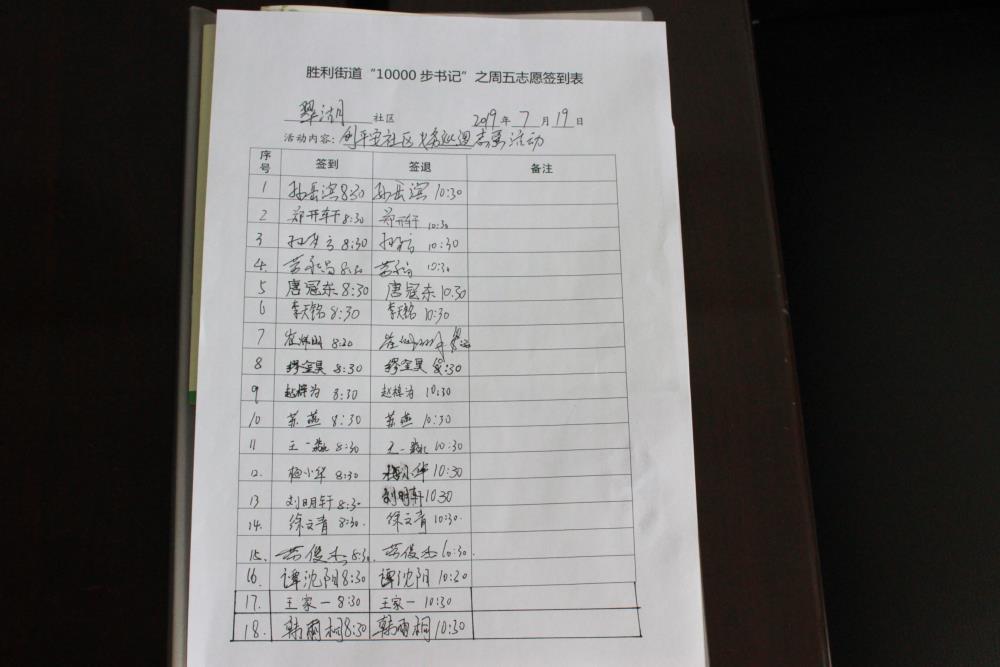 胜利街道“10000步书记”之周五志愿签到表
翠湖 社区 2019 年 7 月 19 日
活动内容: 创平安社区 志愿活动
序号 签到 签退 备注
1 孙岳滨 8:30 孙岳滨 10:30
2 郑开轩 8:30 郑开轩 10:30
3 8:30 10:30
4. 8:30 10:30
5 唐冠东 8:30 唐冠东 10:30
6 李天铭 8:30 李天铭 10:30
7 8:20
8 缪金昊 8:30 缪金昊 8:30
9 赵梓为 8:30 赵梓为 10:30
10 苏燕 8:30 苏燕 10:30
11 王一 8:30 王一 10:30
12. 梅小华 8:30 梅小华 10:30
13 刘明轩 8:30 刘明轩 10:30
14. 徐文青 8:30. 徐文青 10:30.
15. 俊杰 8:30. 俊杰 10:30.
16. 谭沈阳 8:30 谭沈阳 10:20
17. 王家一 8:30 王家一 10:30
18. 韩雨桐 8:30 韩雨桐 10:30